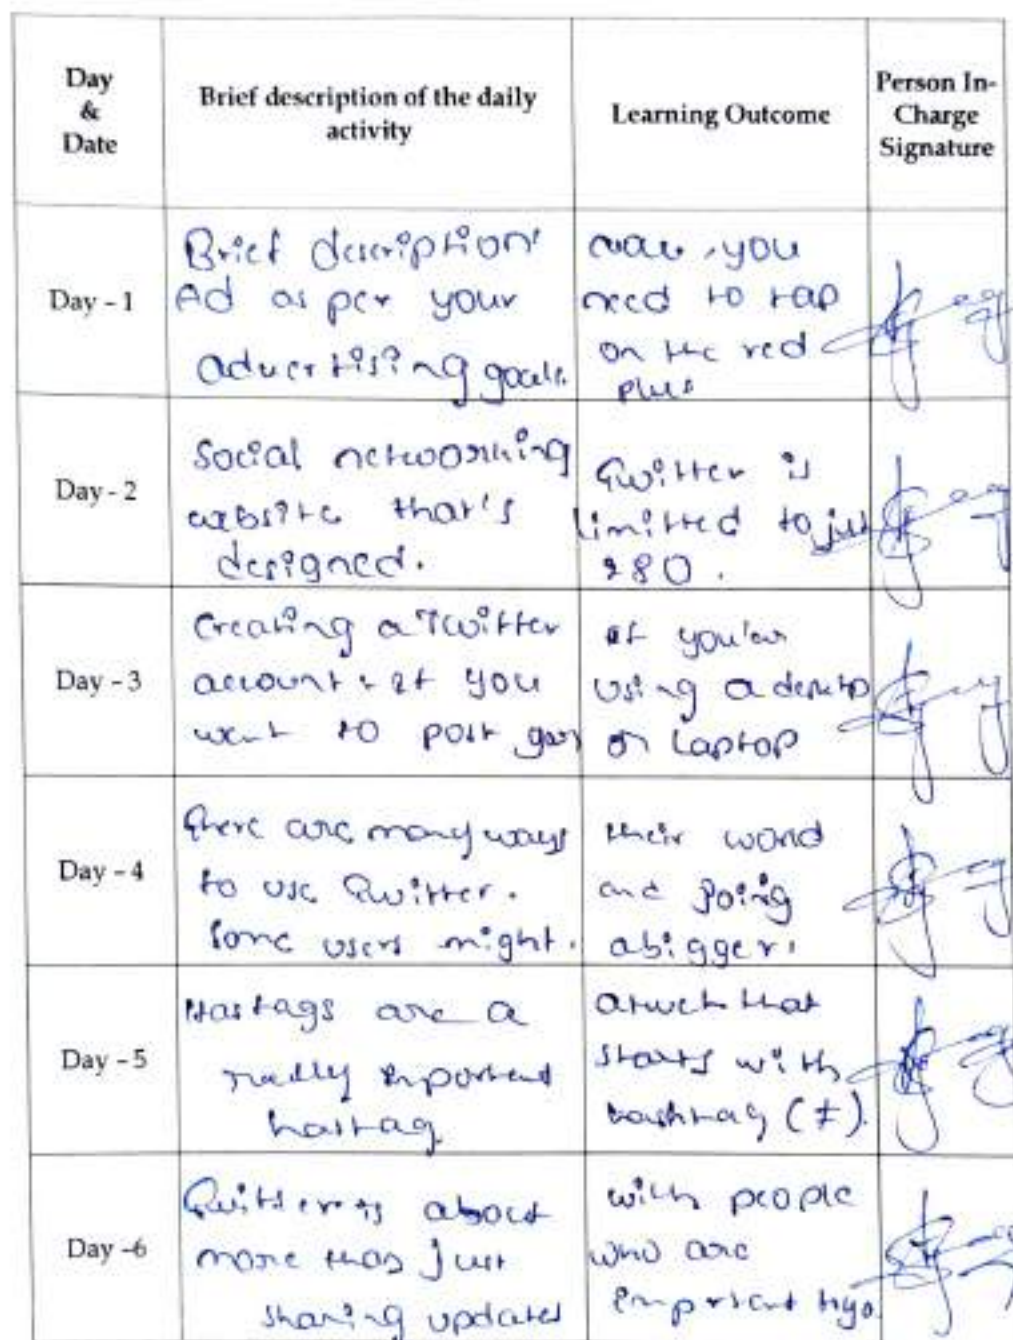 Day
&
Date
Brief description of the daily
activity
Learning Outcome
Person In-
Charge
Signature
Day - 1
Brief description'
Ad as per your
advertising goals.
now, you
need to tap
on the red
plus
Day - 2
Social networking
website that's
designed.
Twitter is
limitted to just
280.
Day - 3
Creating a Twitter
account & if you
want to post
If you'er
using a desktop
or Laptop
Day - 4
There are many ways
to use Twitter.
Some users might.
their world
and
a bigger.
Day - 5
Hastags are a
really important
hastag
a tweet that
starts with
hashtag (#).
Day -6
Twitter is about
more than just
sharing updates
with people
who are
important